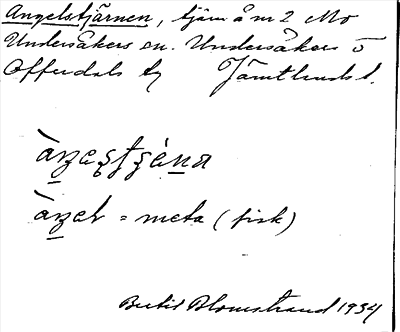 Angelstjärnen, tjärn å m 2 Mo
Undersåkers sn. Undersåkers o
Offerdals tg Jämtlands l.
àŋel = meta (fisk)
Bertil Blomstrand 1934